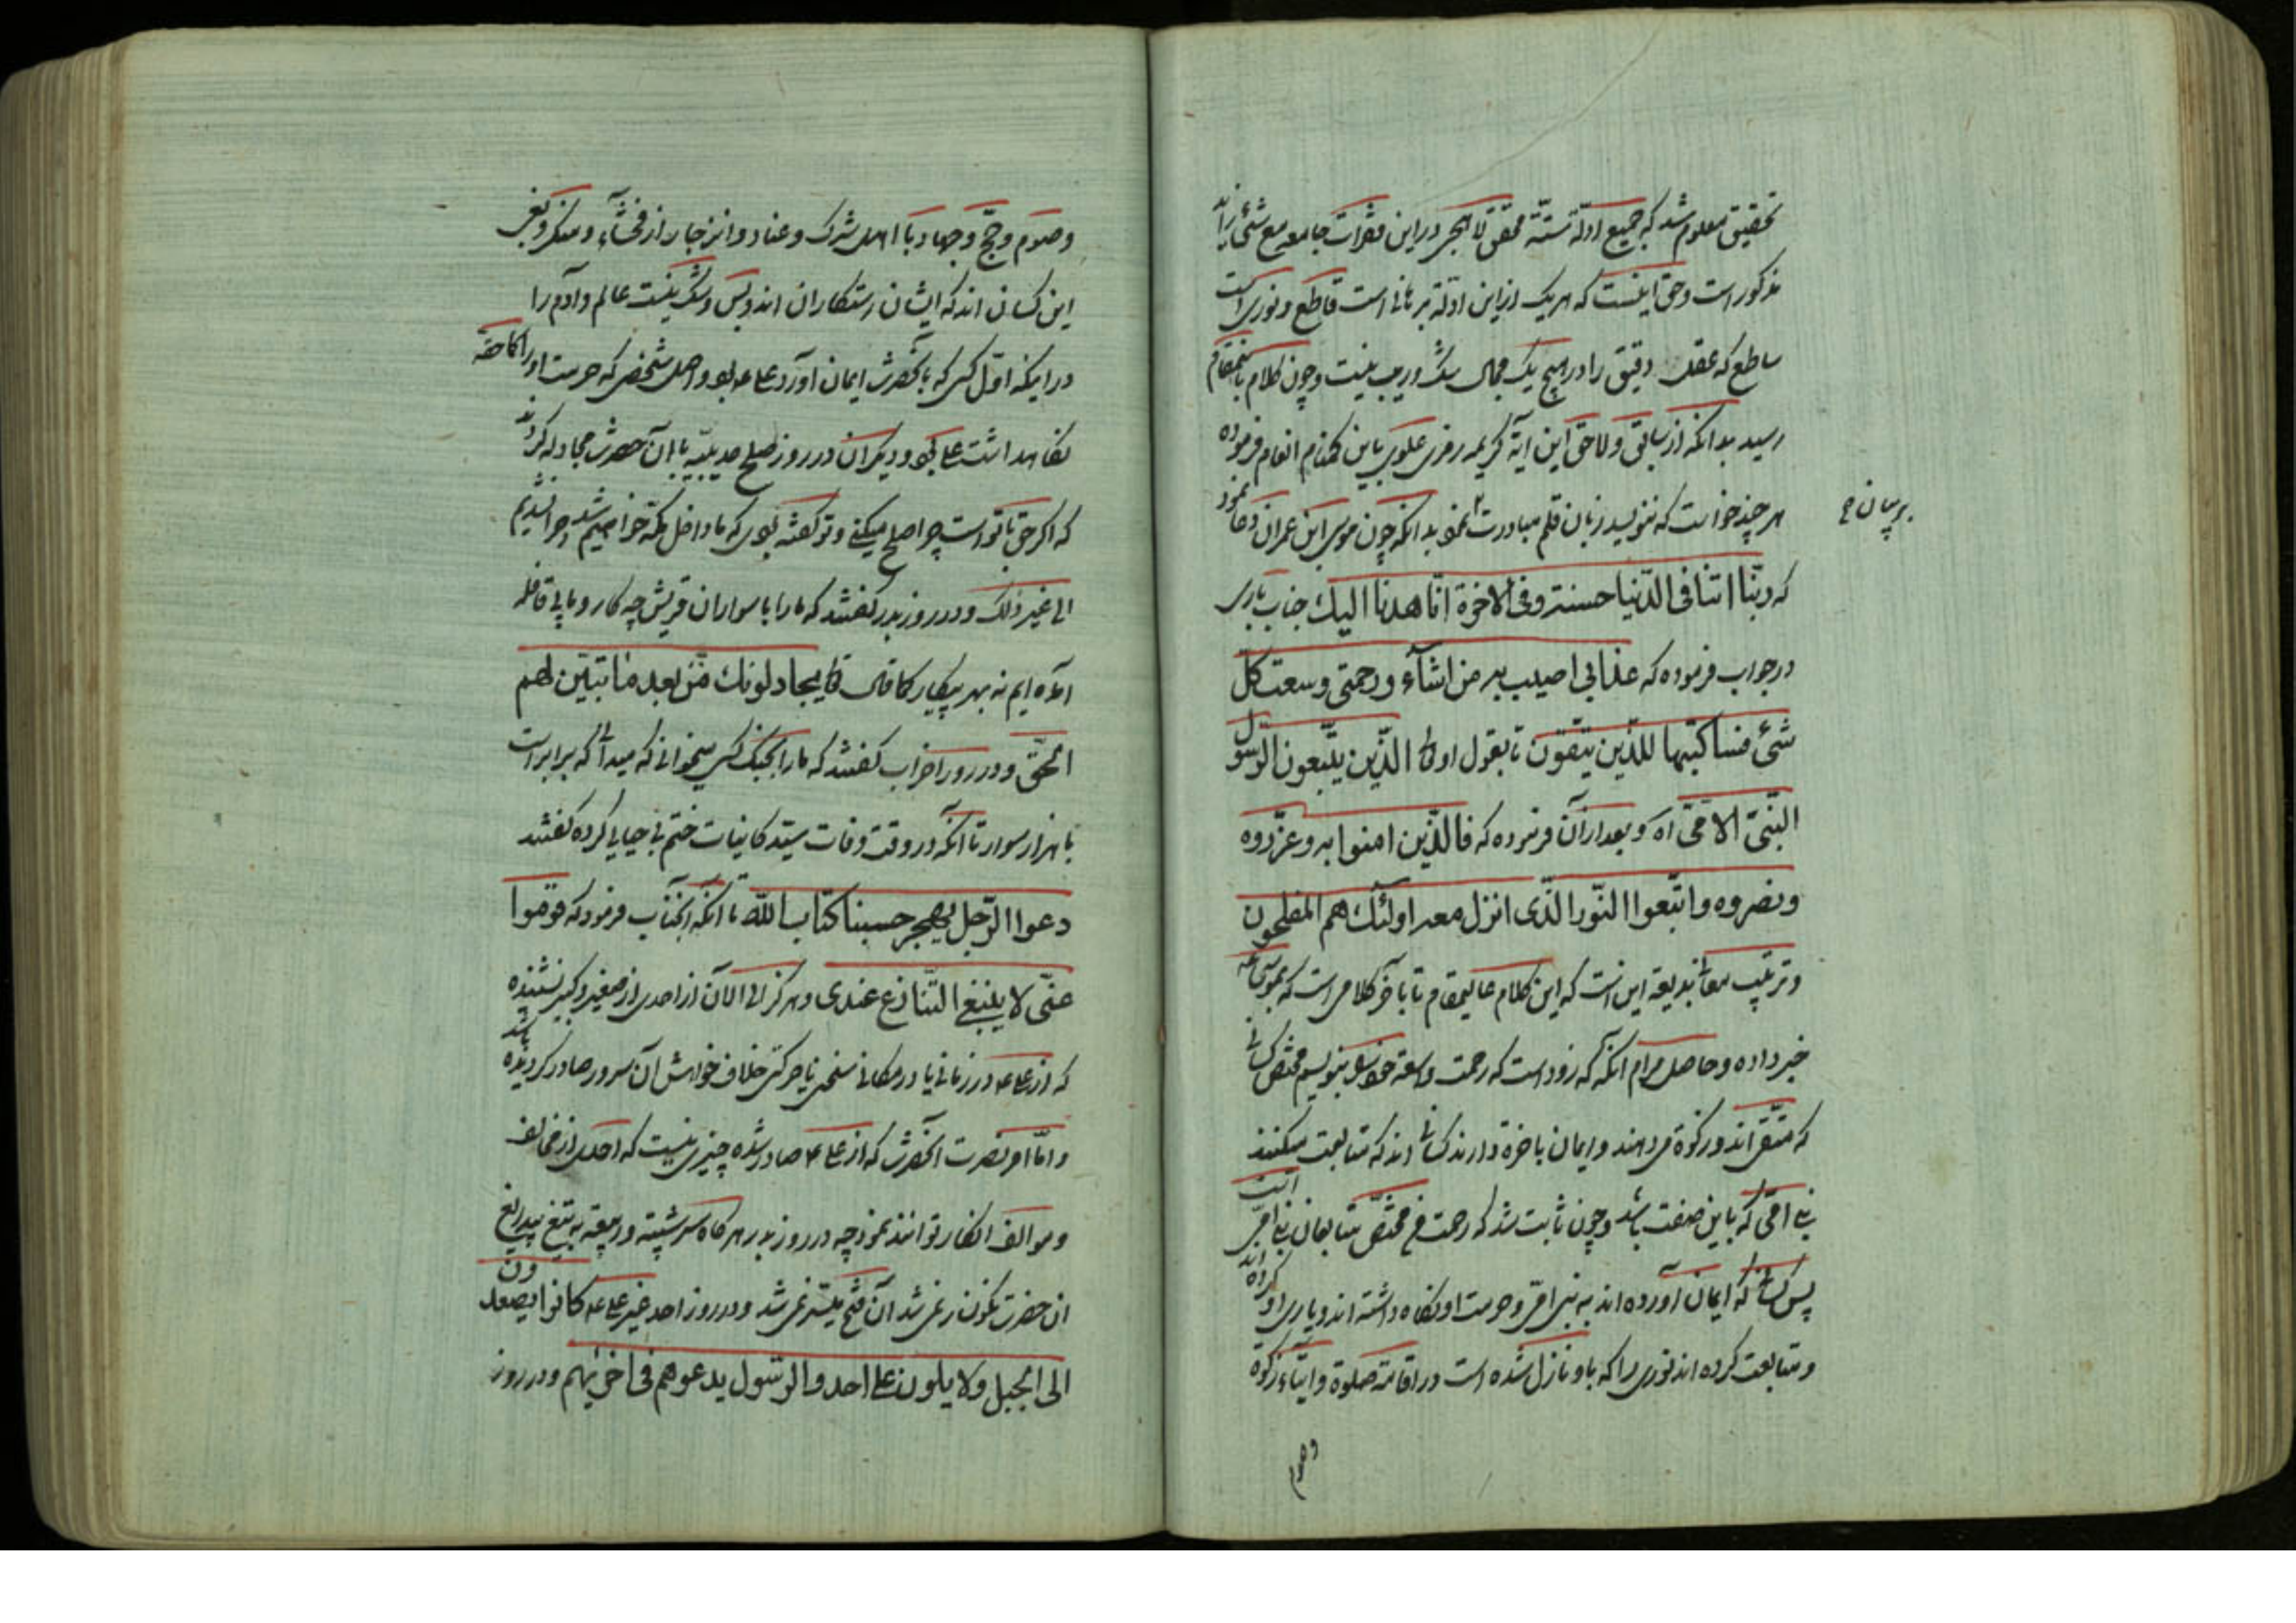 تحقیق معلوم شد که جمیع ادلّهٔ ستّهٔ محقق لاهجی در این فقرات جامعه مع شئ زائد
مذکور است و حق اینست که هریک از این ادلّه برهانی است قاطع و نوری است
ساطع که عقل دقیق را در هیچ یک مجال شک و ریب نیست و چون کلام باینمقام
رسید بدانکه از سابق و لاحق این آیهٔ کریمه رمزی علوی باین گمنام انعام فرموده
هر چند خواست که ننویسد زبان قلم مبادرت نمود بدانکه چون موسی ابن عمران دعا نمود
بر بیان
که ربّنا اتنا فی الدّنیا حسنة و فی الاخرة انّا هدنا الیك جناب باری
در جواب فرموده که عذابی اصیب به من اشآء و رحمتی وسعت کلّ
شئ فساکتبها للذّین یتّقون تا بقول او الذّین یتّبعون الرّسول
النّبیّ الامّیّ اه و بعد از آن فرموده که فالذّین امنوا به و عزّروه
و نصروه و اتّبعوا النّور الذّی انزل معه اولئك هم المفلحون
و ترتیب این است که این کلام عالیمقام تا بآخر کلامی است که بموسی ع
خبر داده و حاصل مرام آنکه زود است که رحمت واسعه خود بنویسم مختص کسانی
که متّقی اند و زکوة می دهند و ایمان باخرة دارند کسانی اند که متابعت میکنند
نبی امّی که باین صفت باشد و چون ثابت شد که رحمت مختصّ متابعان نبی امّی است
پس کسانی که ایمان آورده اند به نبی امّی و حرمت او نگاه داشته اند و یاری او کرده اند
و متابعت کرده اند نوری را که باو نازل شده است در اقامة صلوة و ایتاء زکوة
وصوم
و صوم و حجّ و جهاد با اهل شرک و عناد و انزجار از فحشآء و منکر و بغی
این کسان اند که ایشان رستکاران اند و بس و شک نیست عالم و آدم را
در اینکه اوّل کسی که بآنحضرت ایمان آورد علی ع بود و اصل شخصی که حرمت او را کما حقه
نگاهداشت علی بود و دیگران در روز صلح حدیبیّه با آن حضرت مجادله کردند
که اگر حق با تو است چرا صلح میکنی و تو گفته بودی که ما داخل مکّه خواهیم شد و چرا نشدیم
الی غیر ذلك و در روز بدر گفتند که ما را با سواران قریش چه کار و ما پی قافله
آمده ایم نه بهر پیکار کما قال یجادلونك من بعد ما تبیّن لهم
الحقّ و در روز احزاب گفتند که ما را بجنگ کسی میخوانی که میدانی که برابر است
با هزار سوار تا آنکه در وقت وفات سیّد کاینات ختم بی حیایی کرده گفتند
دعوا الرّجل یهجر حسبنا کتاب اللّه تا آنکه آنجناب فرمود که قوموا
عنّی لا ینبغی التّنازع عندی و هرگز الی الان از احدی از صغیر و کبیر نشنیده باشد
که از علی ع در زمانی یا در مکانی سخنی یا حرکتی خلاف خواهش آن سرور صادر گردیده
و امّا امر نصرت آنحضرت که از علی ع صادر شده چیزی نیست که احدی از مخالف
و موالف انکار تواند نمود چه در روز بدر هرگاه سر شیبه و ربیعه به تیغ بیدریغ
آن حضرت نگون نمی شد آن فتح میسّر نمی شد و در روز احد غیر علی ع کانوا یصعدون
الی الجبل ولا یلون علی احد و الرّسول یدعوهم فی اخریهم و در روز